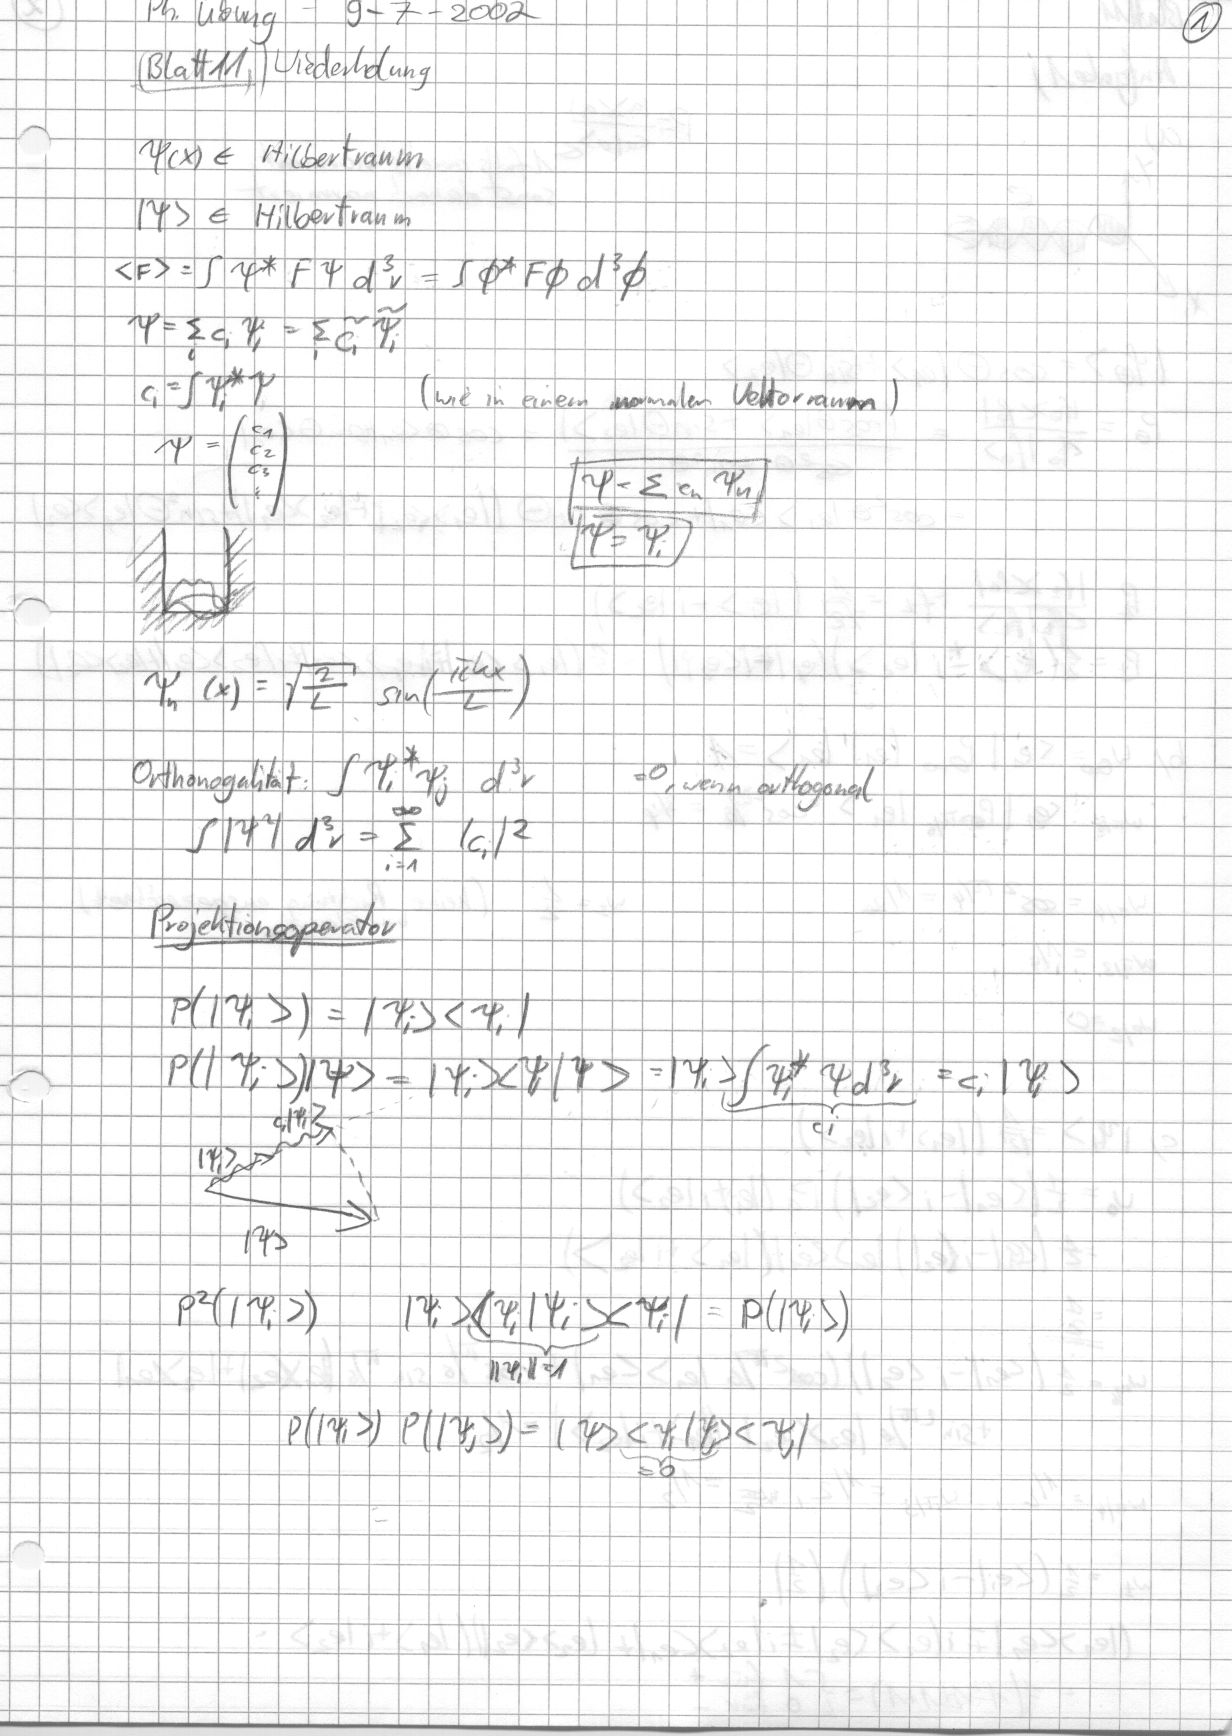 Ph. Übung - 9-7-2002
①
(Blatt 11,) Wiederholung
ψ(x) ∈ Hilbertraum
|ψ> ∈ Hilbertraum
<F> = ∫ ψ* F ψ d³r = ∫ ϕ* F ϕ d³ϕ
ψ = Σ_i c_i ψ_i = Σ_i c̃_i ψ̃_i
c_i = ∫ ψ_i* ψ (wie in einem normalen Vektorraum)
ψ = (c1 c2 c3 ⋮)
ψ = Σ c_n ψ_n
ψ = ψ_i
ψ_n (x) = √(2/L) sin(πkx/L)
Orthonogalität: ∫ ψ_i* ψ_j d³r =0, wenn orthogonal
∫ |ψ²| d³r = Σ_{i=1}^∞ |c_i|²
Projektionsoperator
P(|ψ_i >) = |ψ_i><ψ_i|
P(|ψ_i>)|ψ> = |ψ_i><ψ_i|ψ> = |ψ_i> ∫ψ_i* ψ d³r = c_i |ψ_i>
c_i
c_i|ψ_i>
|ψ_i>
|ψ>
P²(|ψ_i>) |ψ_i><ψ_i|ψ_i><ψ_i| = P(|ψ_i>)
||ψ_i||=1
P(|ψ_i>) P(|ψ_j>) = |ψ_i><ψ_i|ψ_j><ψ_j|
=0